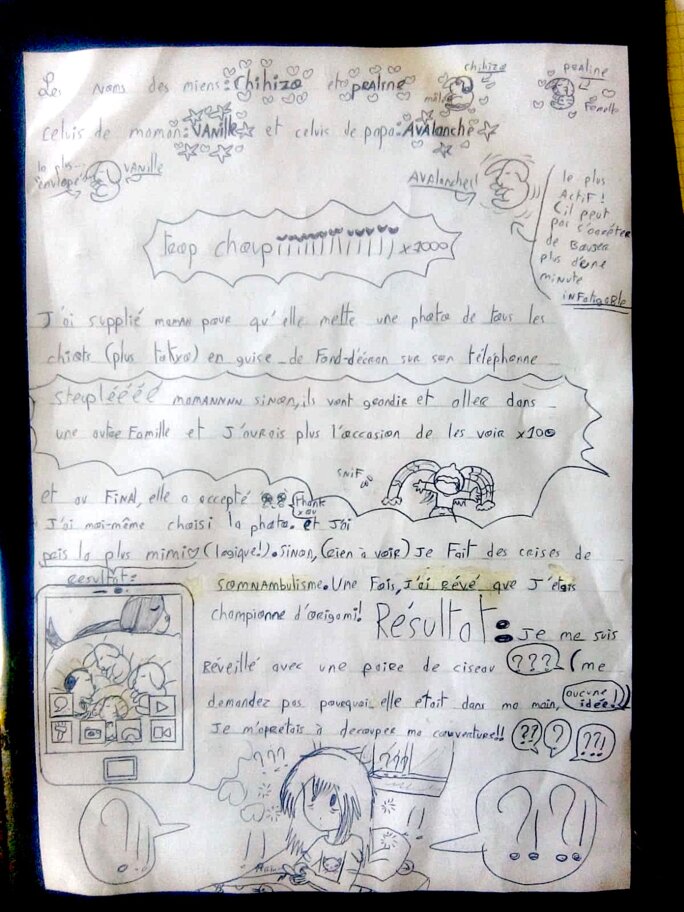 chihizo
praline
Les noms des miens: chihizo et praline
mâle
Femelle
celuis de maman: VANille et celuis de papa: AVAlanche
le plus "enveloppé"
VANille
AVAlanche!!
le plus
Actif!
(il peut
pas s'arrêter
de Bouger
plus d'une
minute
inFatigable
trop choupiiiiiiiiiiii x1000
J'ai supplié maman pour qu'elle mette une photo de tous les
chiots (plus tatxo) en guise de Fond-d'écran sur son téléphonne
steuplééééé mamannnn sinon, ils vont grandir et aller dans
une autre Famille et J'aurais plus l'occasion de les voir x100
SNIF
et au FiNAL, elle a accepté
Thank
you
J'ai moi-même choisi la photo. et J'ai
pris la plus mimi (logique!). Sinon, (rien à voir) Je Fait des crises de
résultat:
somnambulisme. Une Fois, J'ai rêvé que J'étais
championne d'origami! Résultat: Je me suis
Réveillé avec une paire de ciseau ??? (me
demandez pas pourquoi elle était dans ma main, aucune idée!)
Je m'aprêtais à découper ma couverture!! ?? ? ??!
??? ???
?! !! !! ?!?!